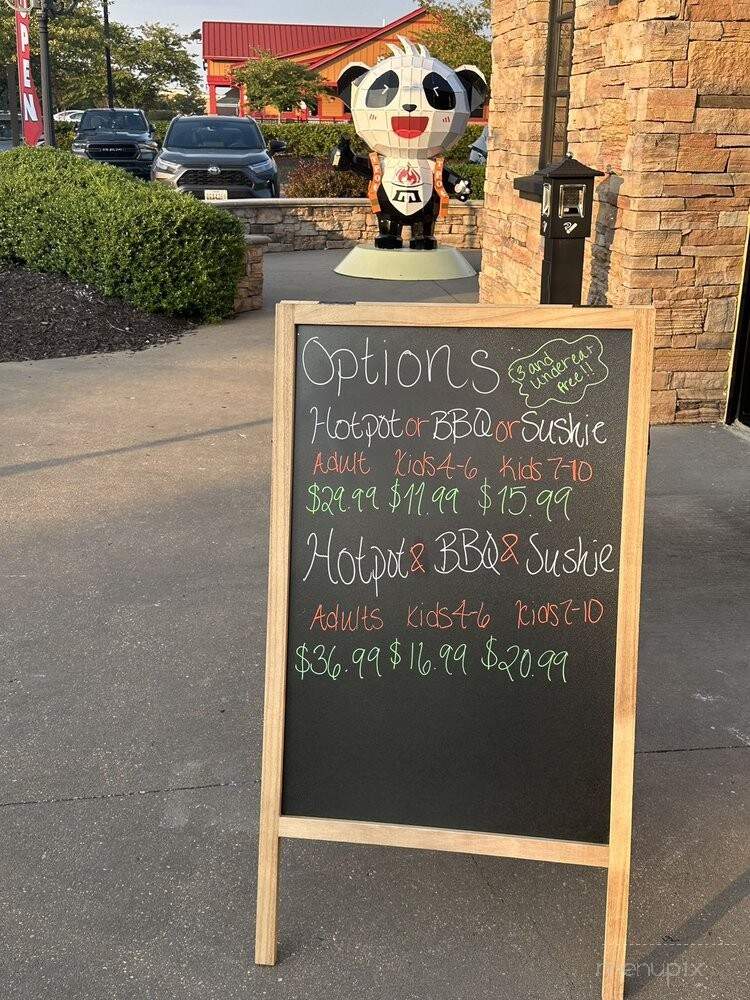 OPEN
Options
3 and
under eat
free!!
Hotpot or BBQ or Sushie
Adult Kids 4-6 Kids 7-10
$29.99 $11.99 $15.99
Hotpot & BBQ & Sushie
Adults Kids 4-6 Kids 7-10
$36.99 $16.99 $20.99
menupix